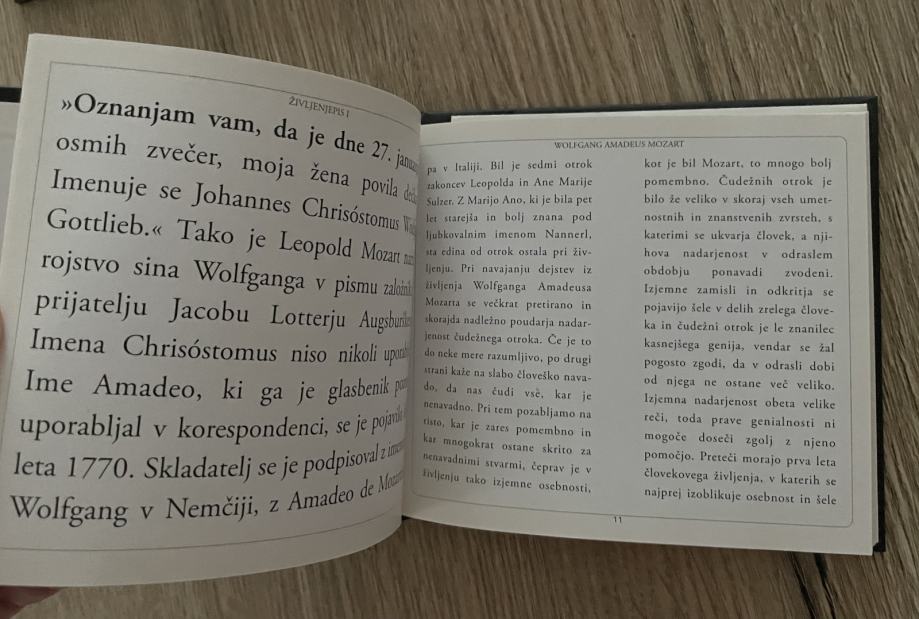 ŽIVLJENJEPIS I
»Oznanjam vam, da je dne 27.
osmih zvečer, moja žena povila
Imenuje se Johannes Chrisóstomus
Gottlieb.« Tako je Leopold Mozart
rojstvo sina Wolfganga v pismu
prijatelju Jacobu Lotterju
Imena Chrisóstomus niso nikoli
Ime Amadeo, ki ga je glasbenik
uporabljal v korespondenci, se je
leta 1770. Skladatelj se je podpisoval z
Wolfgang v Nemčiji, z Amadeo de
WOLFGANG AMADEUS MOZART
pa v Italiji. Bil je sedmi otrok
zakoncev Leopolda in Ane Marije
Sulzer. Z Marijo Ano, ki je bila pet
let starejša in bolj znana pod
ljubkovalnim imenom Nannerl,
sta edina od otrok ostala pri živ-
ljenju. Pri navajanju dejstev iz
življenja Wolfganga Amadeusa
Mozarta se večkrat pretirano in
skorajda nadležno poudarja nadar-
jenost čudežnega otroka. Če je to
do neke mere razumljivo, po drugi
strani kaže na slabo človeško nava-
do, da nas čudi vsè, kar je
nenavadno. Pri tem pozabljamo na
tisto, kar je zares pomembno in
kar mnogokrat ostane skrito za
nenavadnimi stvarmi, čeprav je v
življenju tako izjemne osebnosti,
kot je bil Mozart, to mnogo bolj
pomembno. Čudežnih otrok je
bilo že veliko v skoraj vseh umet-
nostnih in znanstvenih zvrsteh, s
katerimi se ukvarja človek, a nji-
hova nadarjenost v odraslem
obdobju ponavadi zvodeni.
Izjemne zamisli in odkritja se
pojavijo šele v delih zrelega člove-
ka in čudežni otrok je le znanilec
kasnejšega genija, vendar se žal
pogosto zgodi, da v odrasli dobi
od njega ne ostane več veliko.
Izjemna nadarjenost obeta velike
reči, toda prave genialnosti ni
mogoče doseči zgolj z njeno
pomočjo. Preteči morajo prva leta
človekovega življenja, v katerih se
najprej izoblikuje osebnost in šele
11